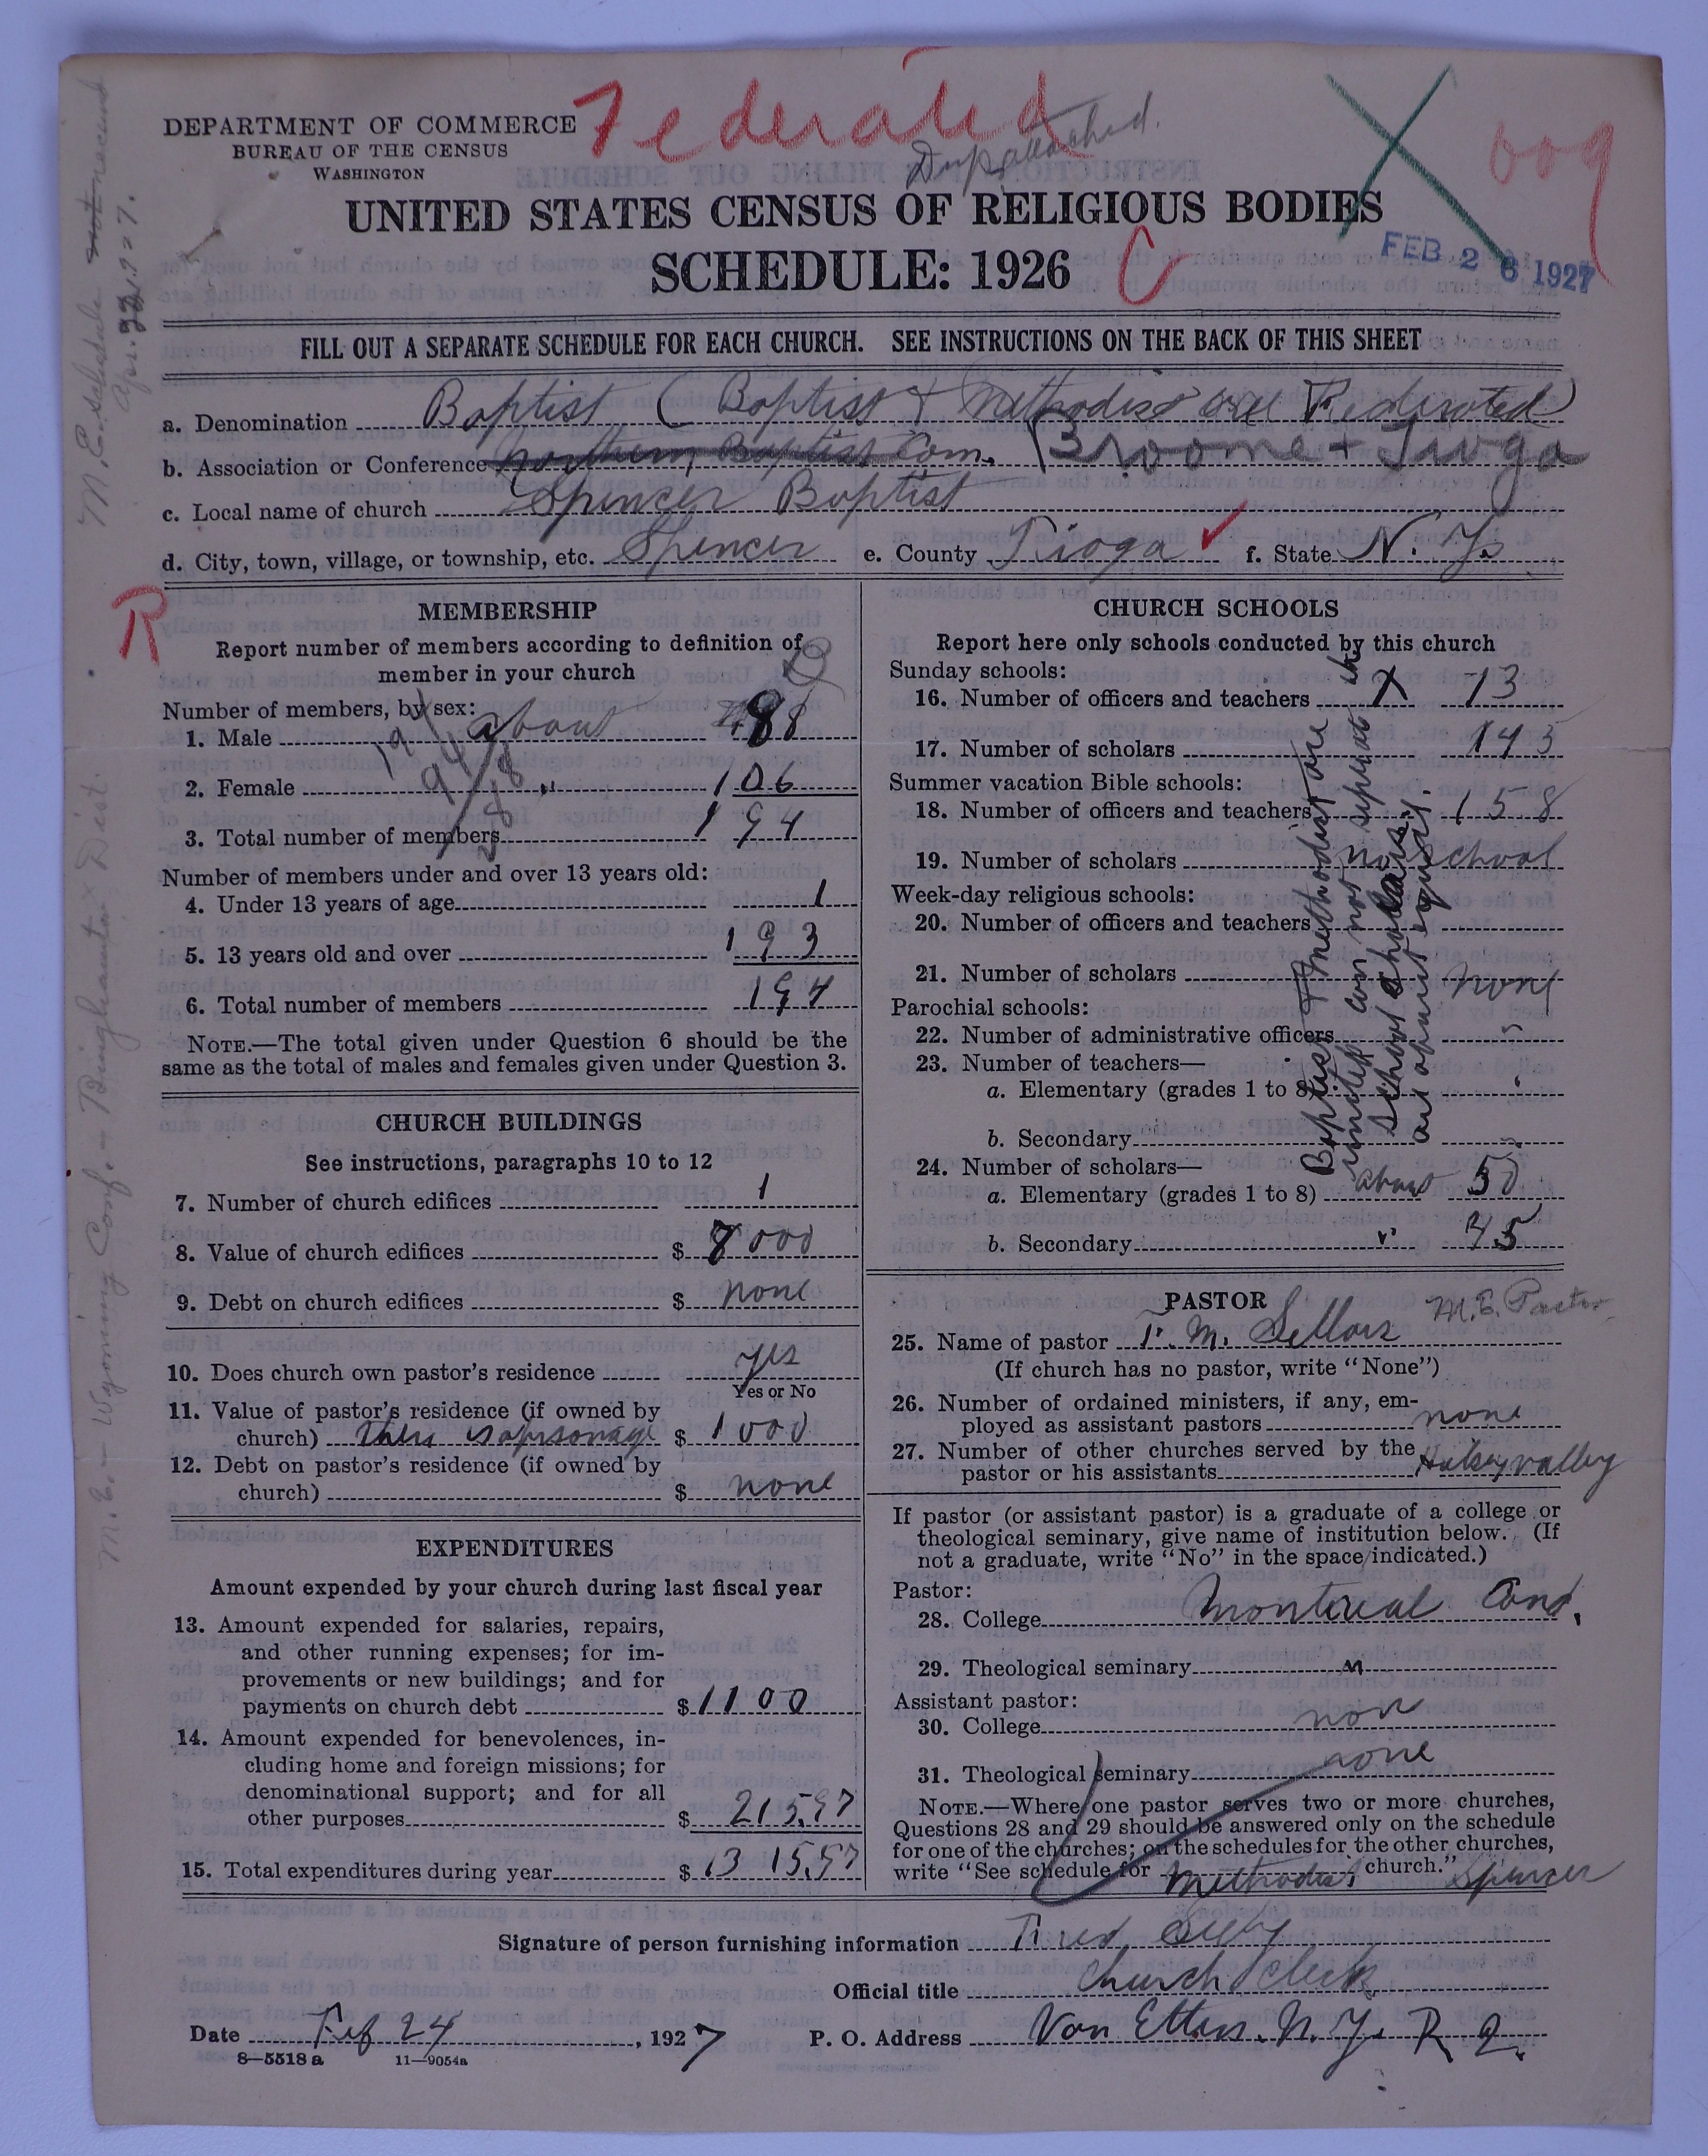 Federated
Dup attached.
609
DEPARTMENT OF COMMERCE
BUREAU OF THE CENSUS
WASHINGTON
UNITED STATES CENSUS OF RELIGIOUS BODIES
SCHEDULE: 1926
C
FEB 26 1927
FILL OUT A SEPARATE SCHEDULE FOR EACH CHURCH. SEE INSTRUCTIONS ON THE BACK OF THIS SHEET
a. Denomination Baptist (Baptist + Methodist are Federated)
b. Association or Conference Northern Baptist Com. Broome + Tioga
c. Local name of church Spencer Baptist
d. City, town, village, or township, etc. Spencer e. County Tioga f. State N. Y.
R
MEMBERSHIP
Report number of members according to definition of member in your church
Number of members, by sex:
1. Male about 88
2. Female " 106
3. Total number of members 194
194
94/88
Number of members under and over 13 years old:
4. Under 13 years of age 1
5. 13 years old and over 193
6. Total number of members 194
NOTE.—The total given under Question 6 should be the
same as the total of males and females given under Question 3.
CHURCH BUILDINGS
See instructions, paragraphs 10 to 12
7. Number of church edifices 1
8. Value of church edifices $ 8000
9. Debt on church edifices $ none
10. Does church own pastor's residence yes
Yes or No
11. Value of pastor's residence (if owned by
church) there is a parsonage $ 1000
12. Debt on pastor's residence (if owned by
church) $ none
EXPENDITURES
Amount expended by your church during last fiscal year
13. Amount expended for salaries, repairs,
and other running expenses; for im-
provements or new buildings; and for
payments on church debt $ 1100
14. Amount expended for benevolences, in-
cluding home and foreign missions; for
denominational support; and for all
other purposes $ 215.97
15. Total expenditures during year $ 1315.97
CHURCH SCHOOLS
Report here only schools conducted by this church
Sunday schools:
16. Number of officers and teachers X 13
17. Number of scholars 143
Summer vacation Bible schools:
18. Number of officers and teachers 158
19. Number of scholars no school
Week-day religious schools:
20. Number of officers and teachers
21. Number of scholars none
Parochial schools:
22. Number of administrative officers "
23. Number of teachers—
a. Elementary (grades 1 to 8) "
b. Secondary "
24. Number of scholars—
a. Elementary (grades 1 to 8) about 50
b. Secondary " 45
Baptist + Methodist are
united can not separate the
School scholars.
are about equal.
PASTOR
25. Name of pastor F. M. Sellars M.E. Pastor
(If church has no pastor, write "None")
26. Number of ordained ministers, if any, em-
ployed as assistant pastors none
27. Number of other churches served by the
pastor or his assistants Halsey valley
If pastor (or assistant pastor) is a graduate of a college or
theological seminary, give name of institution below. (If
not a graduate, write "No" in the space indicated.)
Pastor:
28. College Montreal Cand.
29. Theological seminary "
Assistant pastor:
30. College non
31. Theological seminary none
NOTE.—Where one pastor serves two or more churches,
Questions 28 and 29 should be answered only on the schedule
for one of the churches; on the schedules for the other churches,
write "See schedule for Methodist church." Spencer
Signature of person furnishing information Fred
Official title Church Clerk
Date Feb 24, 1927 P. O. Address Van Etten. N. Y. R 2.
8—5518 a 11—9054a
M.E. schedule not received
Apr. 22, 1927.
M.E. - Wyoming Conf. - Binghamton Dist.